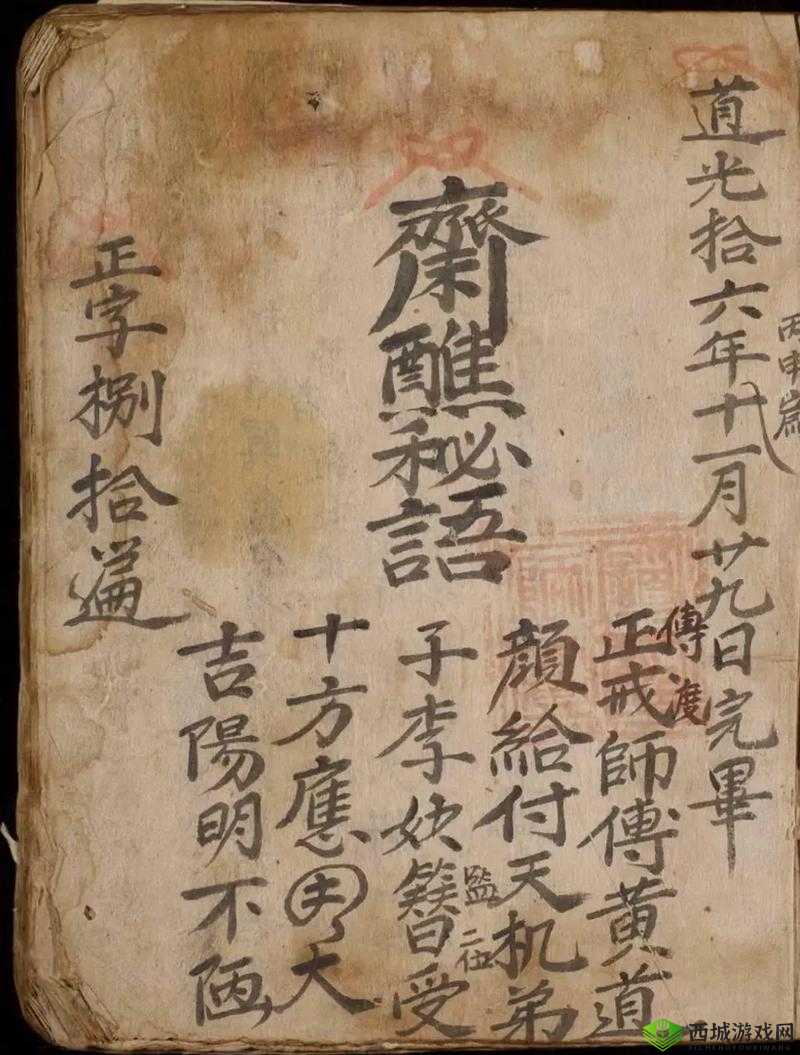 道光拾六年十一月廿九日完畢
丙申歲
傳渡
正戒師傅黄道
顏給付天机弟
子李妙簪受
監二位
十方應夫大
吉陽明不陋
齋醮秘語
正字捌拾遍
西城游戏网